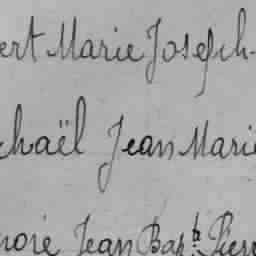 ert Marie Joseph
chaël Jean Marie
noré Jean Bap.te Pierr